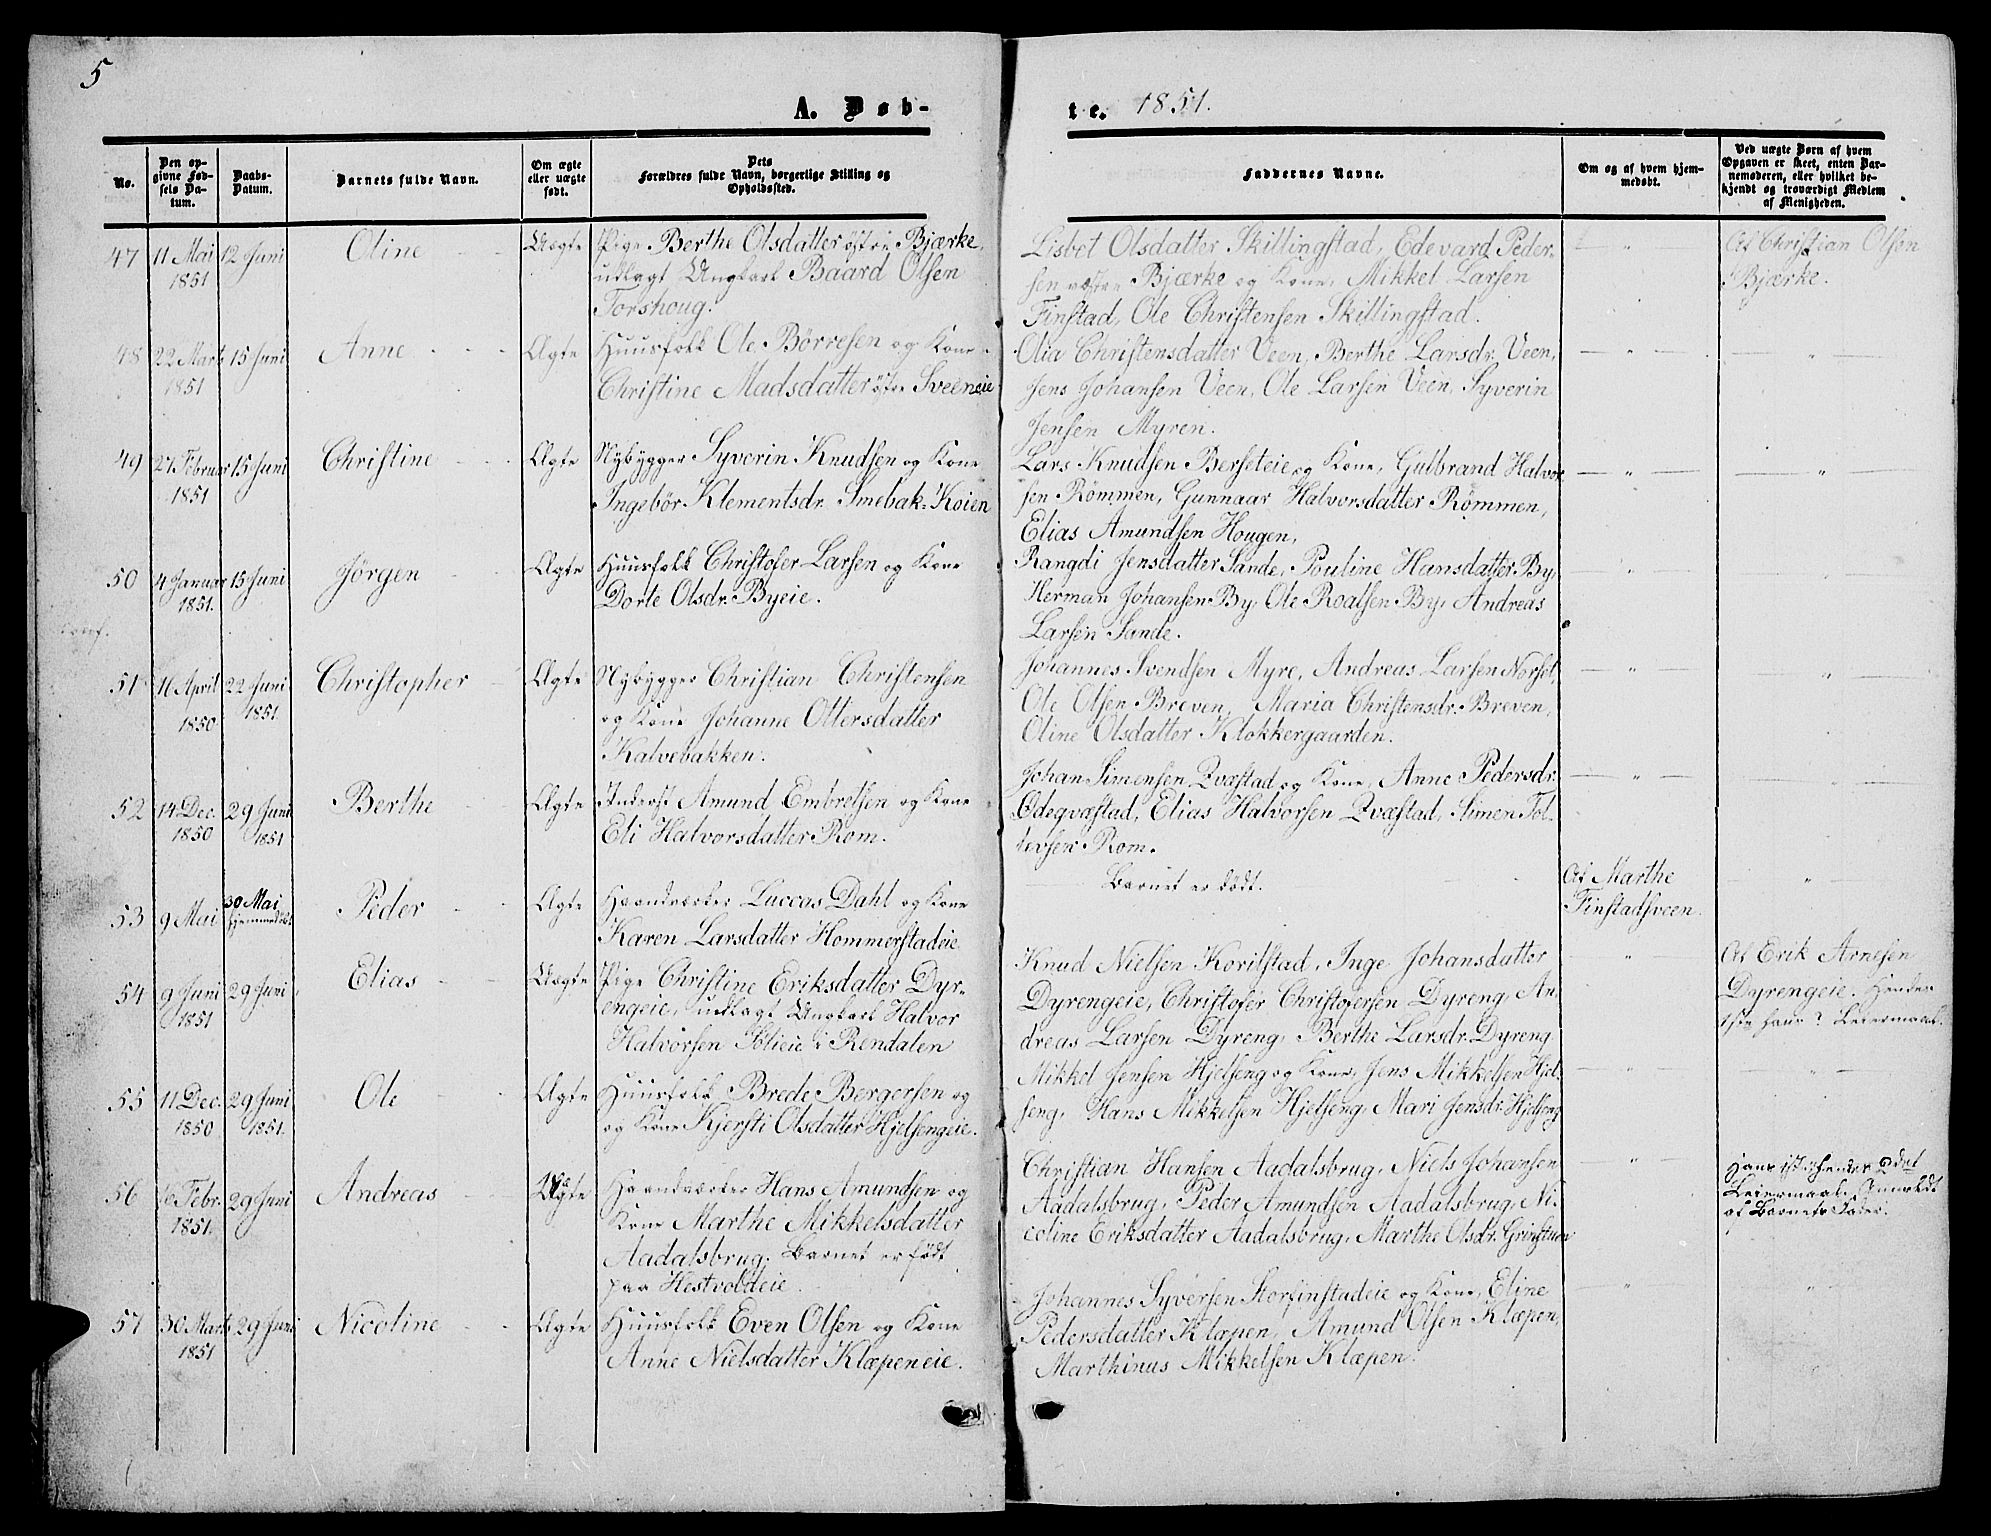 5
A. Døb-
te. 1851.
No.
Den op-
givne Fød-
sels Da-
tum.
Daabs-
Datum.
Barnets fulde Navn.
Om ægte
eller uægte
født.
Dets
Forældres fulde Navn, borgerlige Stilling og
Opholdssted.
Faddernes Navne.
Om og af hvem hjem-
medøbt.
Ved uægte Børn af hvem
Opgaven er skeet, enten Bar-
nemoderen, eller hvilket be-
kjendt og troværdigt Medlem
af Menigheden.
47 11 Mai 1851 12 Juni Oline Uægte
Pige Berthe Olsdatter østre Bjærke,
udlagt Ungkarl Baard Olsen
Torshoug.
Lisbet Olsdatter Skillingstad, Edevard Peder-
sen østre Bjærke og Kone, Mikkel Larsen
Finstad, Ole Christensen Skillingstad.
Af Christian Olsen
Bjærke.
48 22 Marts 1851 15 Juni Anne Ægte
Huusfolk Ole Börresen og Kone
Christine Madsdatter østre Sveeneie
Olia Christensdatter Veen, Berthe Larsdr. Veen,
Jens Johansen Veen, Ole Larsen Veen, Syverin
Jensen Myren.
49 27 Februar 1851 15 Juni Christine Ægte
Nybygger Syverin Knudsen og Kone
Ingebör Klementsdr. Smebak-Koien
Lars Knudsen Berseteie og Kone, Gulbrand Halvor
sen Römmen, Gunnaar Halvorsdatter Römmen,
Elias Amundsen Hougen,
50 4 Januar 1851. 15 Juni Jörgen Ægte
Huusfolk Christofer Larsen og Kone
Dorte Olsdr. Byeie.
Rangdi Jensdatter Sande, Pouline Hansdatter By,
Herman Johansen By, Ole Roalsen By, Andreas
Larsen Sande.
conf.
51 16 April 1850 22 Juni 1851 Christopher Ægte
Nybygger Christian Christensen
og Kone Johanne Ottersdatter
Kalvebakken.
Johannes Svendsen Myre, Andreas Larsen Norset,
Ole Olsen Breven, Maria Christensdr. Breven,
Oline Olsdatter Klokkergaarden.
52 14 Dec. 1850 29 Juni 1851 Berthe Ægte
Inderst Amund Embretsen og Kone
Eli Halvorsdatter Rom.
Johan Simensen Qvæstad og Kone, Anne Pedersdr.
Ödeqvæstad, Elias Halvorsen Qvæstad, Simen Tol-
levsen Rom.
53 9 Mai 30 Mai hjemmedöbt Peder Ægte
Haandværker Luccas Dahl og Kone
Karen Larsdatter Hommerstadeie
Barnet er dödt.
Af Marthe
Finstadsveen.
54 9 Juni 1851 29 Juni Elias Uægte
Pige Christine Eriksdatter Dyr-
engeie, udlagt Ungkarl Halvor
Halvorsen Solieie i Rendalen
Knud Nielsen Koritstad, Inge Johansdatter
Dyrengeie, Christofer Christofersen Dyreng, An-
dreas Larsen Dyreng, Berthe Larsdr. Dyreng
Af Erik Arnesen
Dyrengeie. Hendes
1ste hans ? Leiermaal.
55 11 Dec. 1850 29 Juni 1851. Ole Ægte
Huusfolk Brede Bergersen og
og Kone Kjersti Olsdatter Hjelsengeie.
Mikkel Jensen Hjelseng og Kone, Jens Mikkelsen Hjel-
seng, Hans Mikkelsen Hjelseng, Mari Jensdr. Hjelseng
56 Febr. 1851. 29 Juni Andreas Uægte
Haandværker Hans Amundsen og
Kone Marthe Mikkelsdatter
Aadalsbrug, Barnet er födt
paa Hestvoldeie.
Christian Hansen Aadalsbrug, Niels Johansen
Aadalsbrug, Peder Amundsen Aadalsbrug, Ni-
coline Eriksdatter Aadalsbrug, Marthe Olsdr. Grinstuen
Hans 1ste hendes 2det
Leiermaal. Anmeldt
af Barnets Fader.
57 30 Marts 1851 29 Juni Nicoline Ægte
Huusfolk Even Olsen og Kone
Anne Nielsdatter Klæpeneie.
Johannes Syversen Storfinstadeie og Kone, Eline
Pedersdatter Klæpen, Amund Olsen Klæpen,
Marthinus Mikkelsen Klæpen.